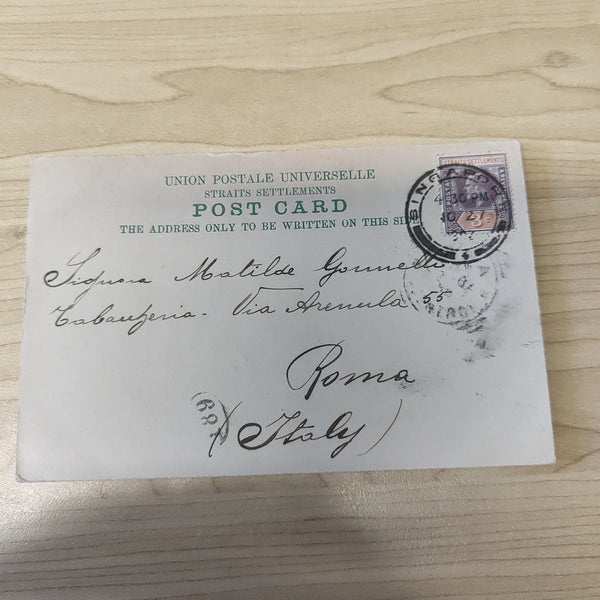 UNION POSTALE UNIVERSELLE
STRAITS SETTLEMENTS
POST CARD
THE ADDRESS ONLY TO BE WRITTEN ON THIS SIDE
STRAITS SETTLEMENTS
SINGAPORE
4 30 PM
27
Signora Matilde Gonnelli
Via Arenula
55
Roma
(Italy)